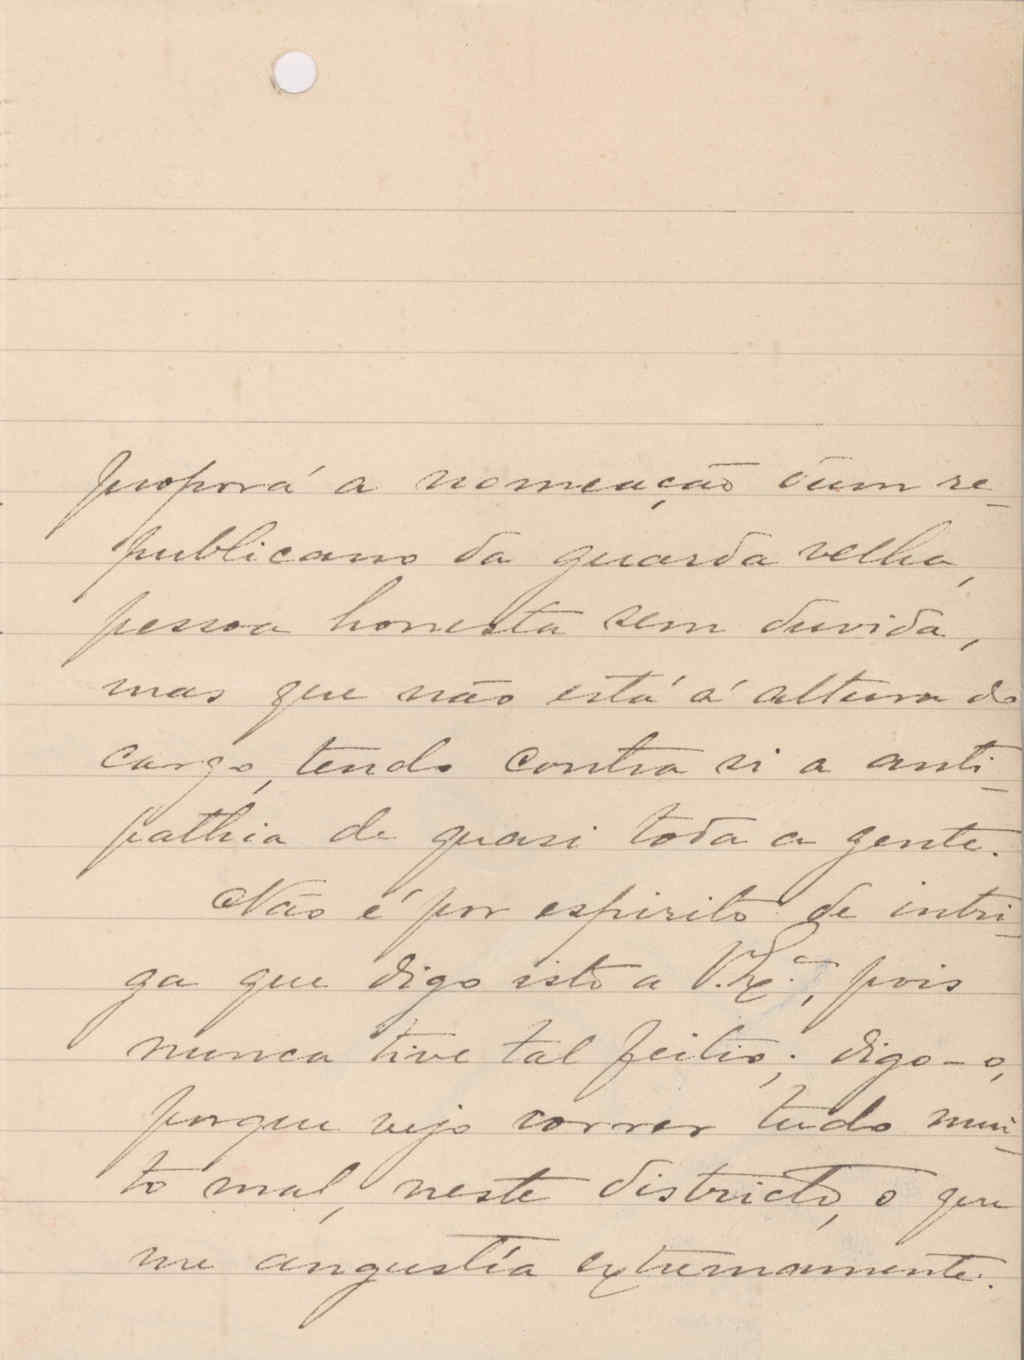 proporá a nomeação d'um re-
publicano da guarda velha,
pessoa honesta sem duvida,
mas que não está á altura do
cargo, tendo contra si a anti-
pathia de quasi toda a gente.
Não é por espirito de intri-
ga que digo isto a V. Ex.ª, pois
nunca tive tal feitio; digo-o,
porque vejo correr tudo mui-
to mal, neste districto, o que
me angustía extremamente.